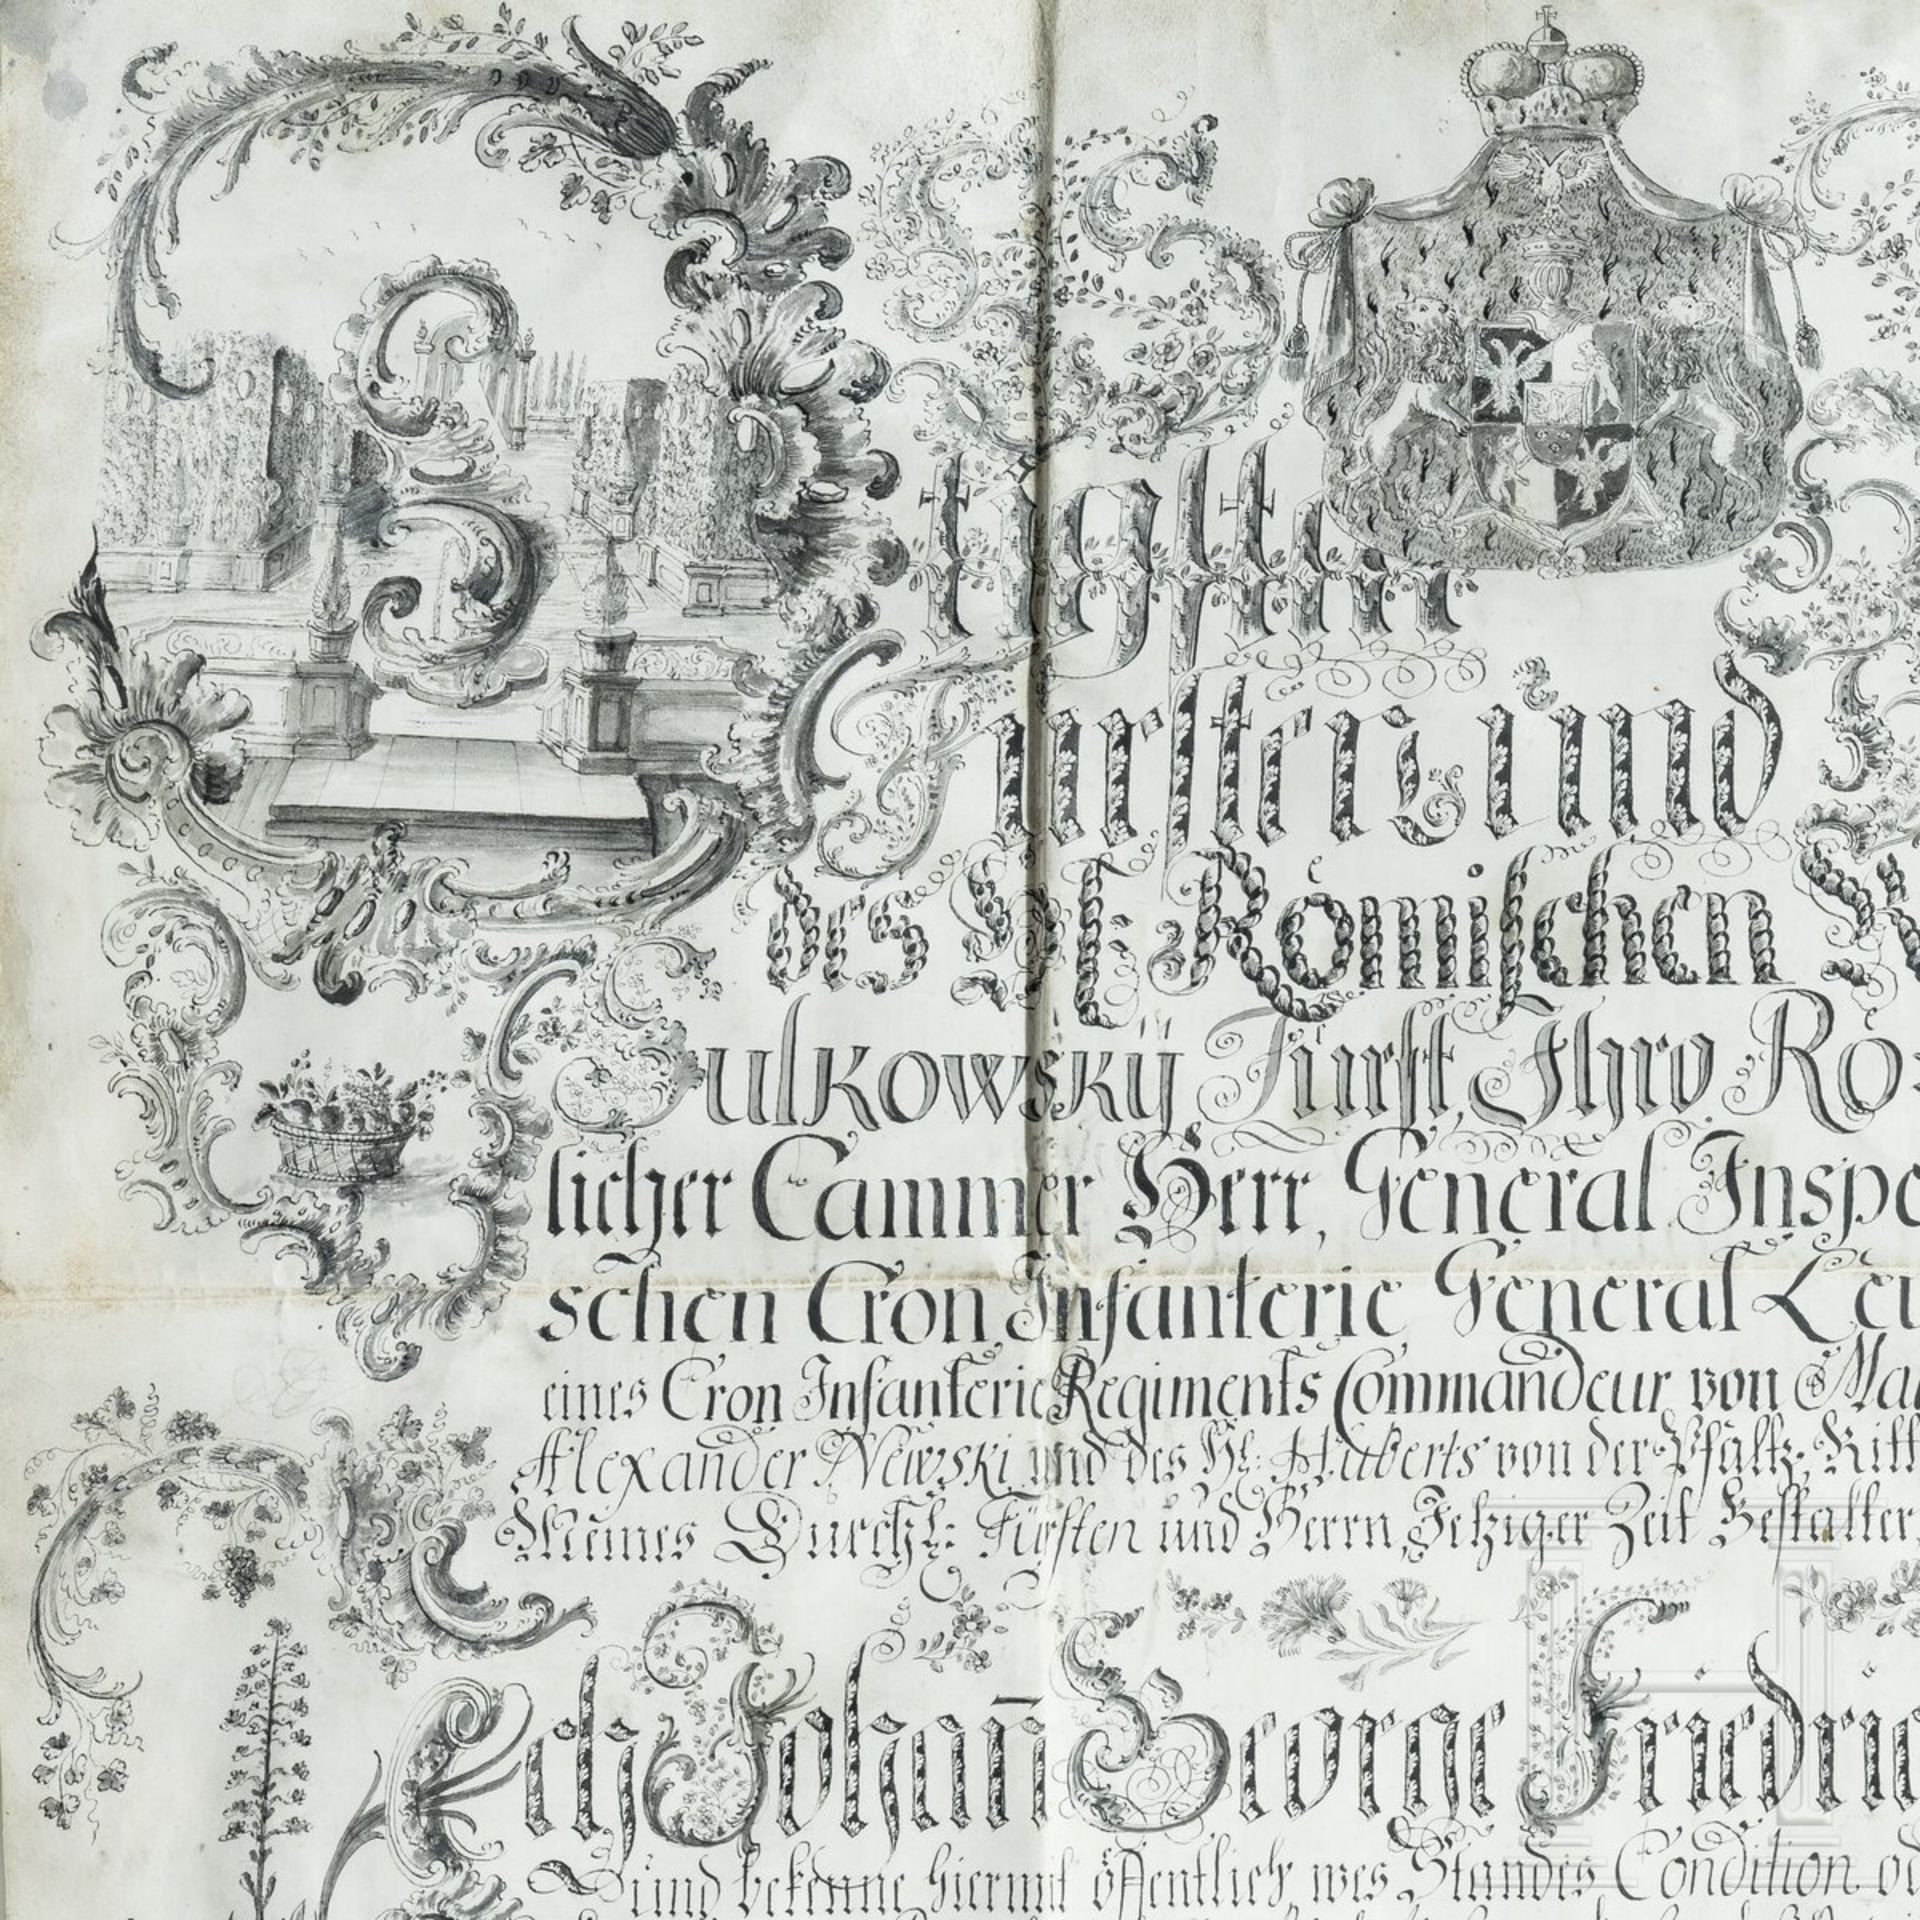 Fürsten, und
des H. Römischen
Sulkowskÿ Fürst, Ihro Rö=
licher Cammer Herr, General Inspe
schen Cron Infanterie General Leu
eines Cron Infanterie Regiments Commandeur von
Alexander Newski und des Hl: Huberts von der Pfaltz, Ritt
Meines Durchl: Fürsten und Herrn, Jetziger Zeit Bestallter
Ich Johañ George Friedric
bekenne hiermit öffentlich, wes Standes Condition od